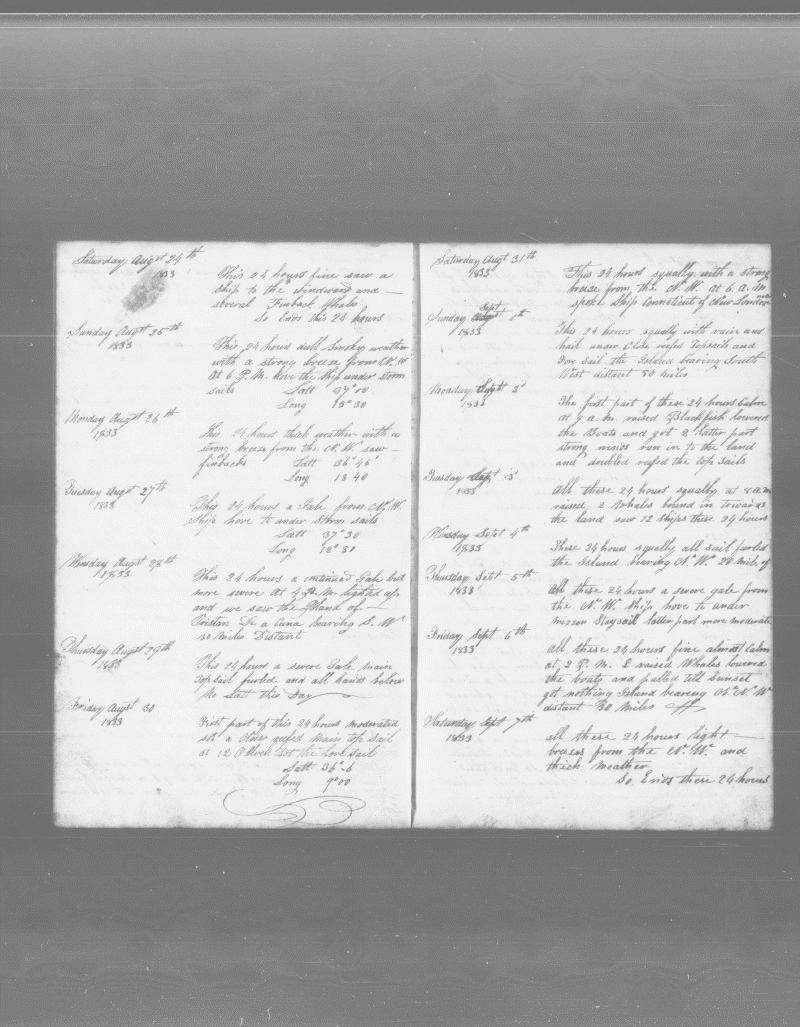 Saturday Augst 24th
1833
This 24 hours fine saw a
Ship to the windward and
several Finback Whales
So Ends this 24 hours
Sunday Augst 25th
1833
This 24 hours dull Smoky weather
with a strong breeze from N. W
At 6 P. M. hove the Ship under storm
sails Latt 37°00
Long 13°30
Monday Augst 26th
1833
This 24 hours thick weather with a
strong breeze from the N. W. saw
finbacks Latt 36°45'
Long 13 40
Tuesday Augst 27th
1833
This 24 hours a Gale from N. W.
Ship hove to under Storm sails
Latt 37°30
Long 12°30
Wensday Augst 28th
1833
This 24 hours a continued Gale but
more severe At 4 P. M. lighted up
and we saw the Island of
Tristan De a Cuna bearing S. W
30 Miles Distant
Thursday Augst 29th
1833
This 24 hours a severe Gale main
Topsail furled and all hands below
No Latt this Day
Friday Augst 30
1833
First part of this 24 hours moderated
set a Close reefed Main top sail
at 12 Oclock Set the fore sail
Latt 36°-6
Long 9°00
Saturday Augt 31th
1833
This 24 hours squally with a strong
breeze from the N. W. at 6 A. M
spoke Ship Connecticut of New London
Sunday Sept 1th
1833
This 24 hours squally with rain and
hail under Close reefed Topsails and
Fore sail the Island bearing South
West distant 80 miles
Monday Sept 2d
1833
The first part of these 24 hours Calm
at 9 a. m. raised Blackfish lowered
the Boats and got 2 latter part
strong winds ran in to the land
and doubled reefed the top sails
Tuesday Sep 3d
1833
All these 24 hours squally at 8 a. m
raised 2 Whales bound in towards
the land saw 12 Ships these 24 hours
Wensday Sept 4th
1833
These 24 hours squally all sail furled
the Island bearing N. W. 20 mile of
Thursday Sept 5th
1833
All these 24 hours a severe gale from
the N. W. Ship hove to under
mizzen Staysail latter part more moderate
Friday Sept 6th
1833
All these 24 hours fine almost Calm
at 2 P. M. I raised Whales lowered
the boats and pulled till sunset
got nothing Island bearing N. N. W.
distant 30 miles
Saturday Sept 7th
1833
all these 24 hours light
breezes from the N. W. and
thick weather
So Ends these 24 hours